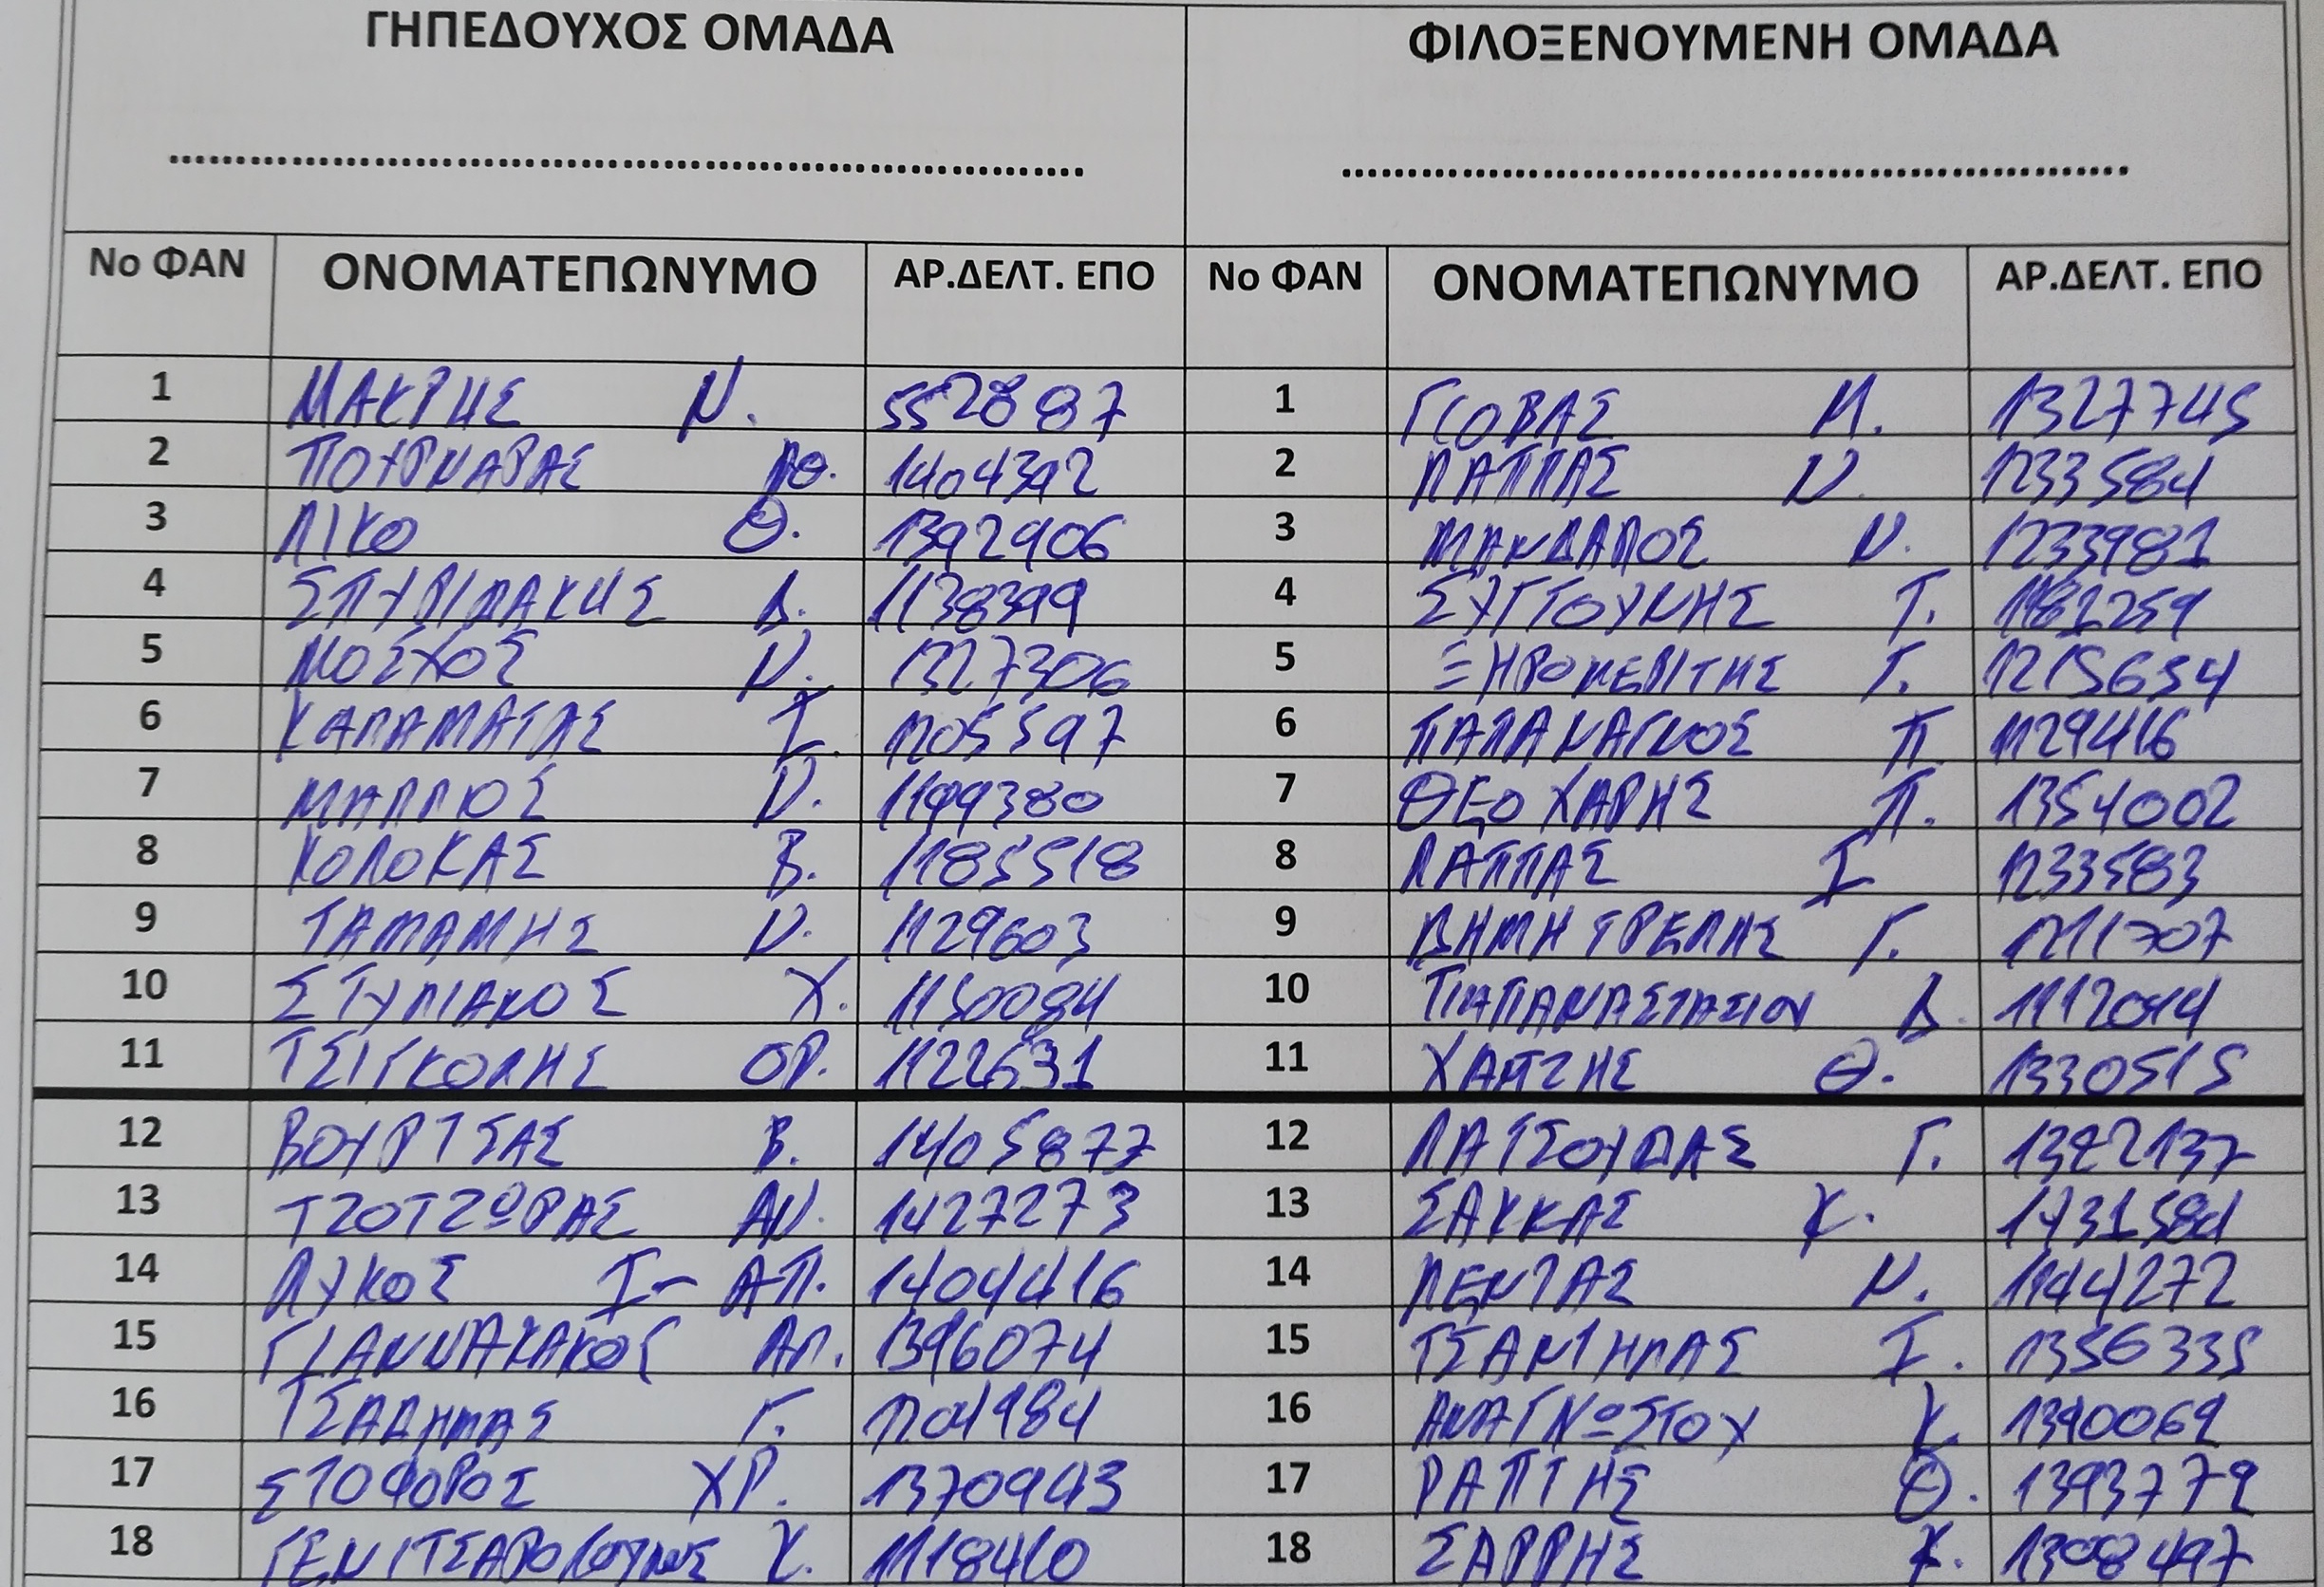 ΓΗΠΕΔΟΥΧΟΣ ΟΜΑΔΑ ΦΙΛΟΞΕΝΟΥΜΕΝΗ ΟΜΑΔΑ
Νο ΦΑΝ ΟΝΟΜΑΤΕΠΩΝΥΜΟ ΑΡ.ΔΕΛΤ. ΕΠΟ Νο ΦΑΝ ΟΝΟΜΑΤΕΠΩΝΥΜΟ ΑΡ.ΔΕΛΤ. ΕΠΟ
1 ΜΑΚΡΗΣ Ν. 552887 1 ΓΙΟΒΑΣ Μ. 1327745
2 ΠΟΥΡΝΑΡΑΣ ΑΘ. 1404392 2 ΛΑΠΠΑΣ Ν. 1233584
3 ΛΙΚΟ Θ. 1392906 3 ΜΑΝΔΑΛΟΣ Ν. 1233981
4 ΣΠΥΡΙΔΑΚΗΣ Δ. 1138399 4 ΣΥΓΓΟΥΝΗΣ Γ. 1182259
5 ΜΟΣΧΟΣ Ν. 1327306 5 ΞΗΡΟΜΕΡΙΤΗΣ Γ. 1215634
6 ΚΑΛΑΜΑΤΑΣ Ι. 1205597 6 ΠΑΠΑΝΑΓΝΟΣ Π. 1129416
7 ΜΑΛΛΙΟΣ Ν. 1199380 7 ΘΕΟΧΑΡΗΣ Π. 1354002
8 ΚΟΛΟΚΑΣ Β. 1185518 8 ΛΑΠΠΑΣ Ι 1233583
9 ΤΑΜΑΜΗΣ Ν. 1129603 9 ΔΗΜΗΤΡΕΛΗΣ Γ. 1211707
10 ΣΤΥΛΙΑΝΟΣ Χ. 1150084 10 ΠΑΠΑΝΑΣΤΑΣΙΟΥ Δ. 1112044
11 ΤΣΙΓΚΟΛΗΣ ΟΡ. 1122631 11 ΧΑΤΖΗΣ Θ. 1330515
12 ΒΟΥΡΤΣΑΣ Β. 1405877 12 ΛΑΤΣΟΥΔΑΣ Γ. 1322137
13 ΤΖΟΤΖΩΡΑΣ ΑΝ. 1427273 13 ΣΑΚΚΑΣ Κ. 1431584
14 ΛΥΚΟΣ Ι-ΑΠ. 1404416 14 ΛΕΝΤΑΣ Ν. 1144272
15 ΓΙΑΝΝΑΚΑΚΟΣ ΑΠ. 1396074 15 ΤΣΑΝΤΗΛΑΣ Ι. 1356335
16 ΤΣΑΔΗΜΑΣ Γ. 1204984 16 ΑΝΑΓΝΩΣΤΟΥ Κ. 1390069
17 ΣΤΟΦΟΡΟΣ ΧΡ. 1370943 17 ΡΑΠΤΗΣ Θ. 1393779
18 ΓΕΝΙΤΣΑΡΟΠΟΥΛΟΣ Κ. 1118410 18 ΣΑΡΡΗΣ Κ. 1308497